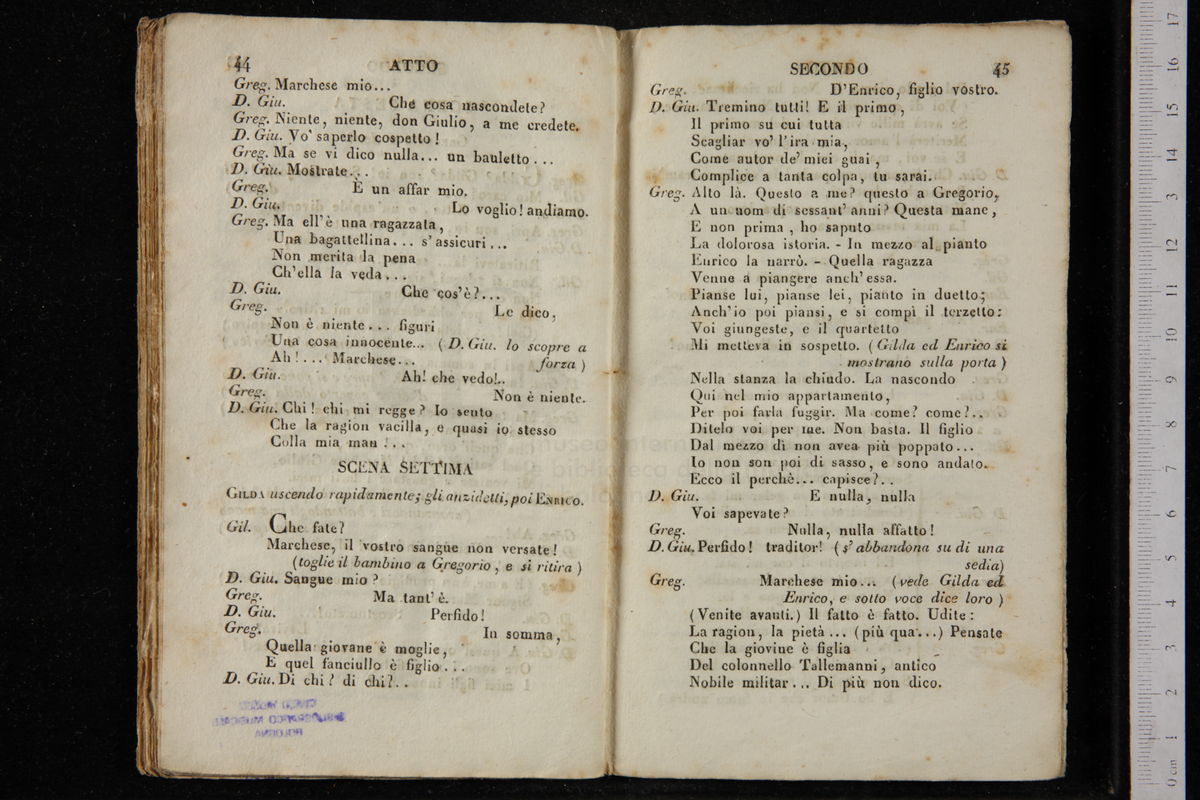 44 ATTO
Greg. Marchese mio...
D. Giu. Che cosa nascondete?
Greg. Niente, niente, don Giulio, a me credete.
D. Giu. Vo' saperlo cospetto!
Greg. Ma se vi dico nulla... un bauletto...
D. Giu. Mostrate...
Greg. È un affar mio.
D. Giu. Lo voglio! andiamo.
Greg. Ma ell'è una ragazzata,
Una bagattellina... s'assicuri...
Non merita la pena
Ch'ella la veda...
D. Giu. Che cos'è?...
Greg. Le dico,
Non è niente... figuri
Una cosa innocente... (D. Giu. lo scopre a
Ah!... Marchese... forza)
D. Giu. Ah! che vedo!..
Greg. Non è niente.
D. Giu. Chi! chi mi regge? Io sento
Che la ragion vacilla, e quasi io stesso
Colla mia man!..
SCENA SETTIMA
GILDA uscendo rapidamente; gli anzidetti, poi ENRICO.
Gil. Che fate?
Marchese, il vostro sangue non versate!
(toglie il bambino a Gregorio, e si ritira)
D. Giu. Sangue mio?
Greg. Ma tant'è.
D. Giu. Perfido!
Greg. In somma,
Quella giovane è moglie,
E quel fanciullo è figlio...
D. Giu. Di chi? di chi?..
BIBLIOGRAFICO MUSICALE
BOLOGNA
SECONDO 45
Greg. D'Enrico, figlio vostro.
D. Giu. Tremino tutti! E il primo,
Il primo su cui tutta
Scagliar vo' l'ira mia,
Come autor de' miei guai,
Complice a tanta colpa, tu sarai.
Greg. Alto là. Questo a me? questo a Gregorio,
A un uom di sessant'anni? Questa mane,
E non prima, ho saputo
La dolorosa istoria. - In mezzo al pianto
Enrico la narrò. - Quella ragazza
Venne a piangere anch'essa.
Pianse lui, pianse lei, pianto in duetto;
Anch'io poi piansi, e si compì il terzetto:
Voi giungeste, e il quartetto
Mi metteva in sospetto. (Gilda ed Enrico si
mostrano sulla porta)
Nella stanza la chiudo. La nascondo
Qui nel mio appartamento,
Per poi farla fuggir. Ma come? come?..
Ditelo voi per me. Non basta. Il figlio
Dal mezzo dì non avea più poppato...
Io non son poi di sasso, e sono andato.
Ecco il perchè... capisce?..
D. Giu. E nulla, nulla
Voi sapevate?
Greg. Nulla, nulla affatto!
D. Giu. Perfido! traditor! (s'abbandona su di una
sedia)
Greg. Marchese mio... (vede Gilda ed
Enrico, e sotto voce dice loro)
(Venite avanti.) Il fatto è fatto. Udite:
La ragion, la pietà... (più qua...) Pensate
Che la giovine è figlia
Del colonnello Tallemanni, antico
Nobile militar... Di più non dico.
0 cm 1 2 3 4 5 6 7 8 9 10 11 12 13 14 15 16 17